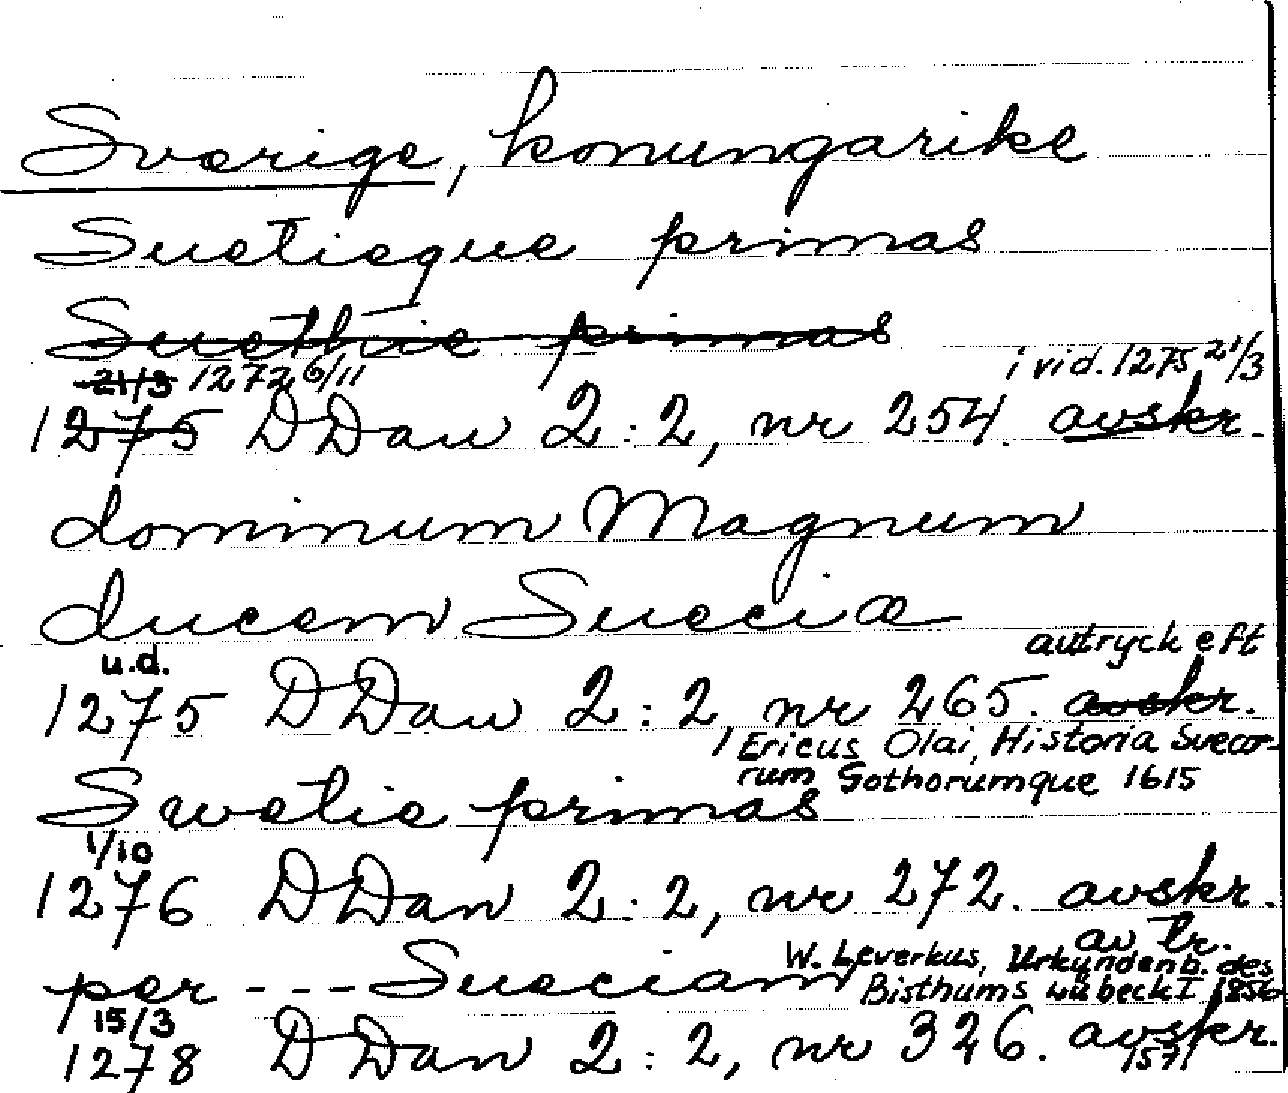 Sverige, konungarike
Suetieque primas
Suethie primas
21/3 1272 6/11 i vid. 1275 21/3
1275 DDan 2:2, nr 254. avskr.
dominum Magnum
ducem Sueciæ
u.d. avtryck eft
1275 DDan 2:2, nr 265. avskr.
Ericus Olai, Historia Sveco-
rum Gothorumque 1615
Swetie primas
1/10
1276 DDan 2:2, nr 272. avskr.
av tr.
W. Leverkus, Urkundenb. des
per --- Sueciam
Bisthums Lübeck I 1856
15/3
1278 DDan 2:2, nr 326. avskr.
1571